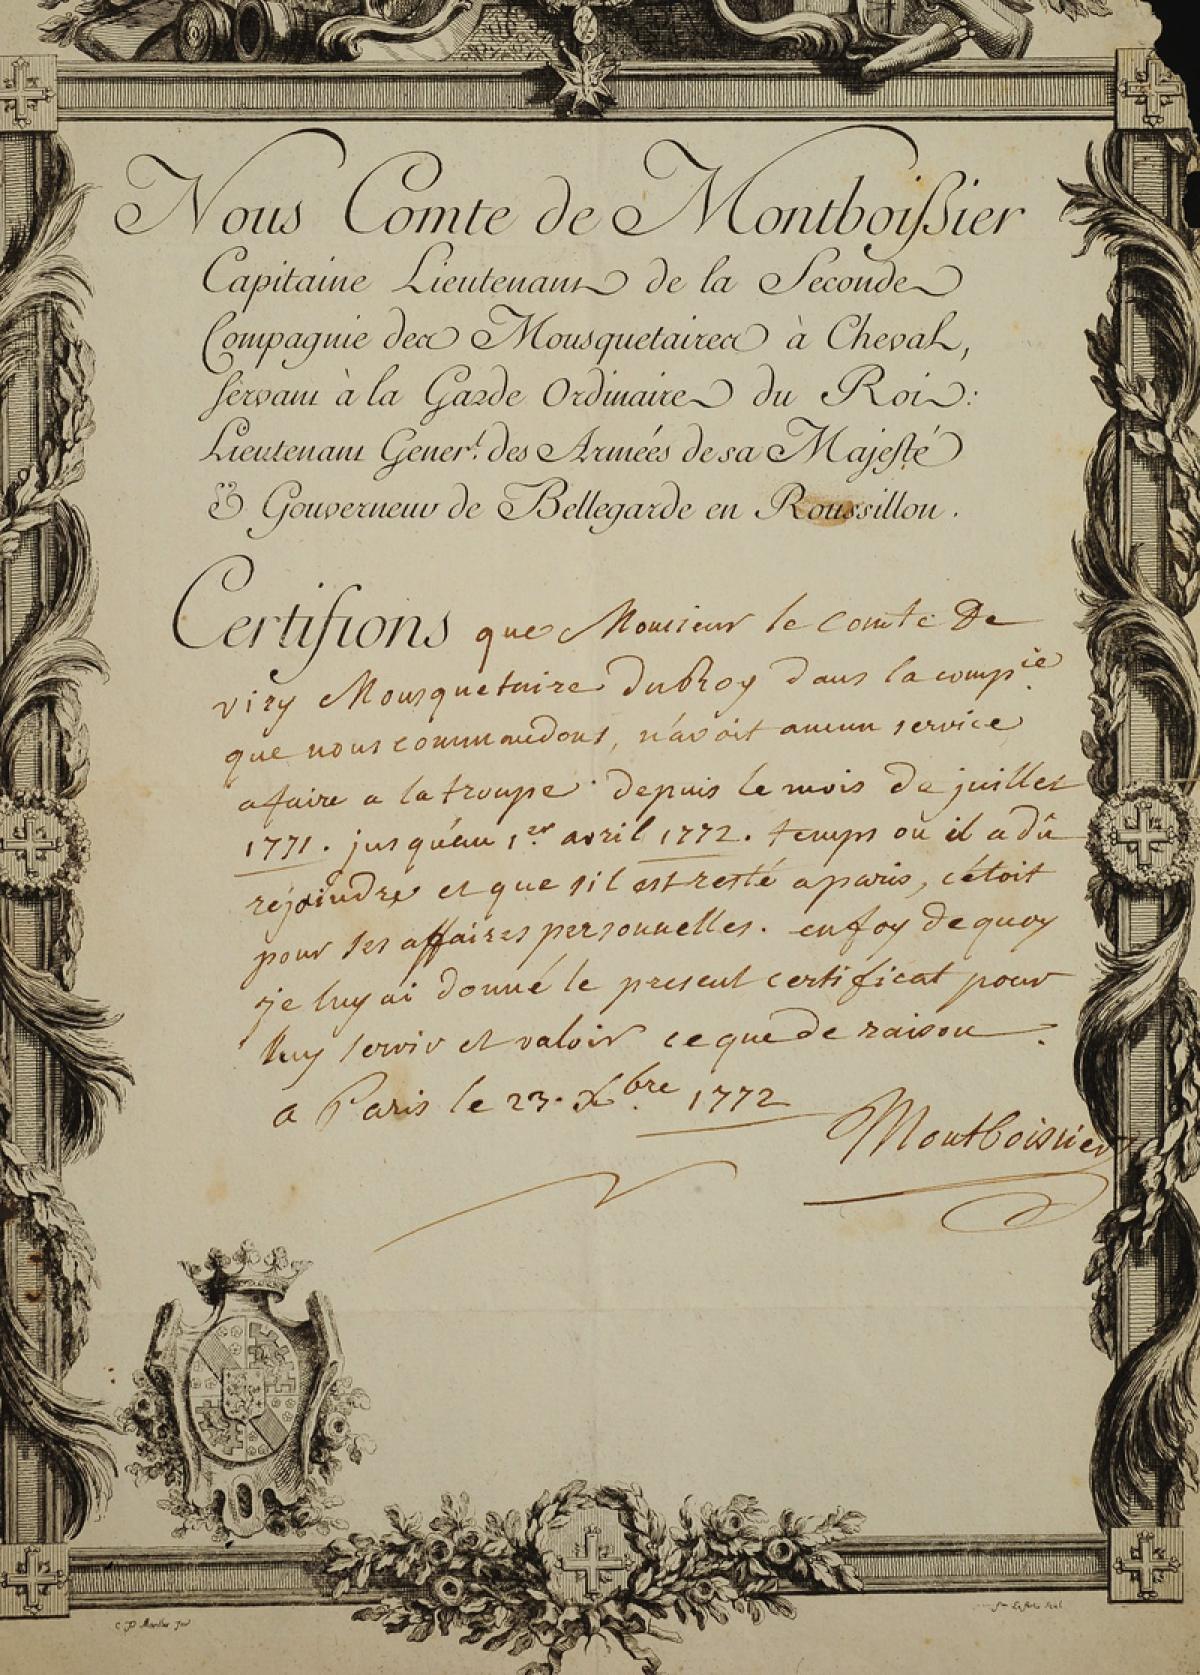 Nous Comte de Montboissier
Capitaine Lieutenant de la Seconde
Compagnie des Mousquetaires à Cheval,
servant à la Garde Ordinaire du Roi:
Lieutenant Gener.l des Armées de sa Majesté
& Gouverneur de Bellegarde en Roussillon.
Certifions que Monsieur le comte De
viry Mousquetaire du Roy dans la comp.ie
que nous commandons, n'avoit aucun service
a faire a la troupe depuis le mois de juillet
1771. jusqu'au 1.er avril 1772. temps où il a dû
rejoindre et que s'il est resté a paris, c'étoit
pour ses affaires personnelles. en foy de quoy
je luy ai donné le present certificat pour
luy servir et valoir ce que de raison.
a Paris le 23. Xbre 1772
Montboissier
C. P. Marillier